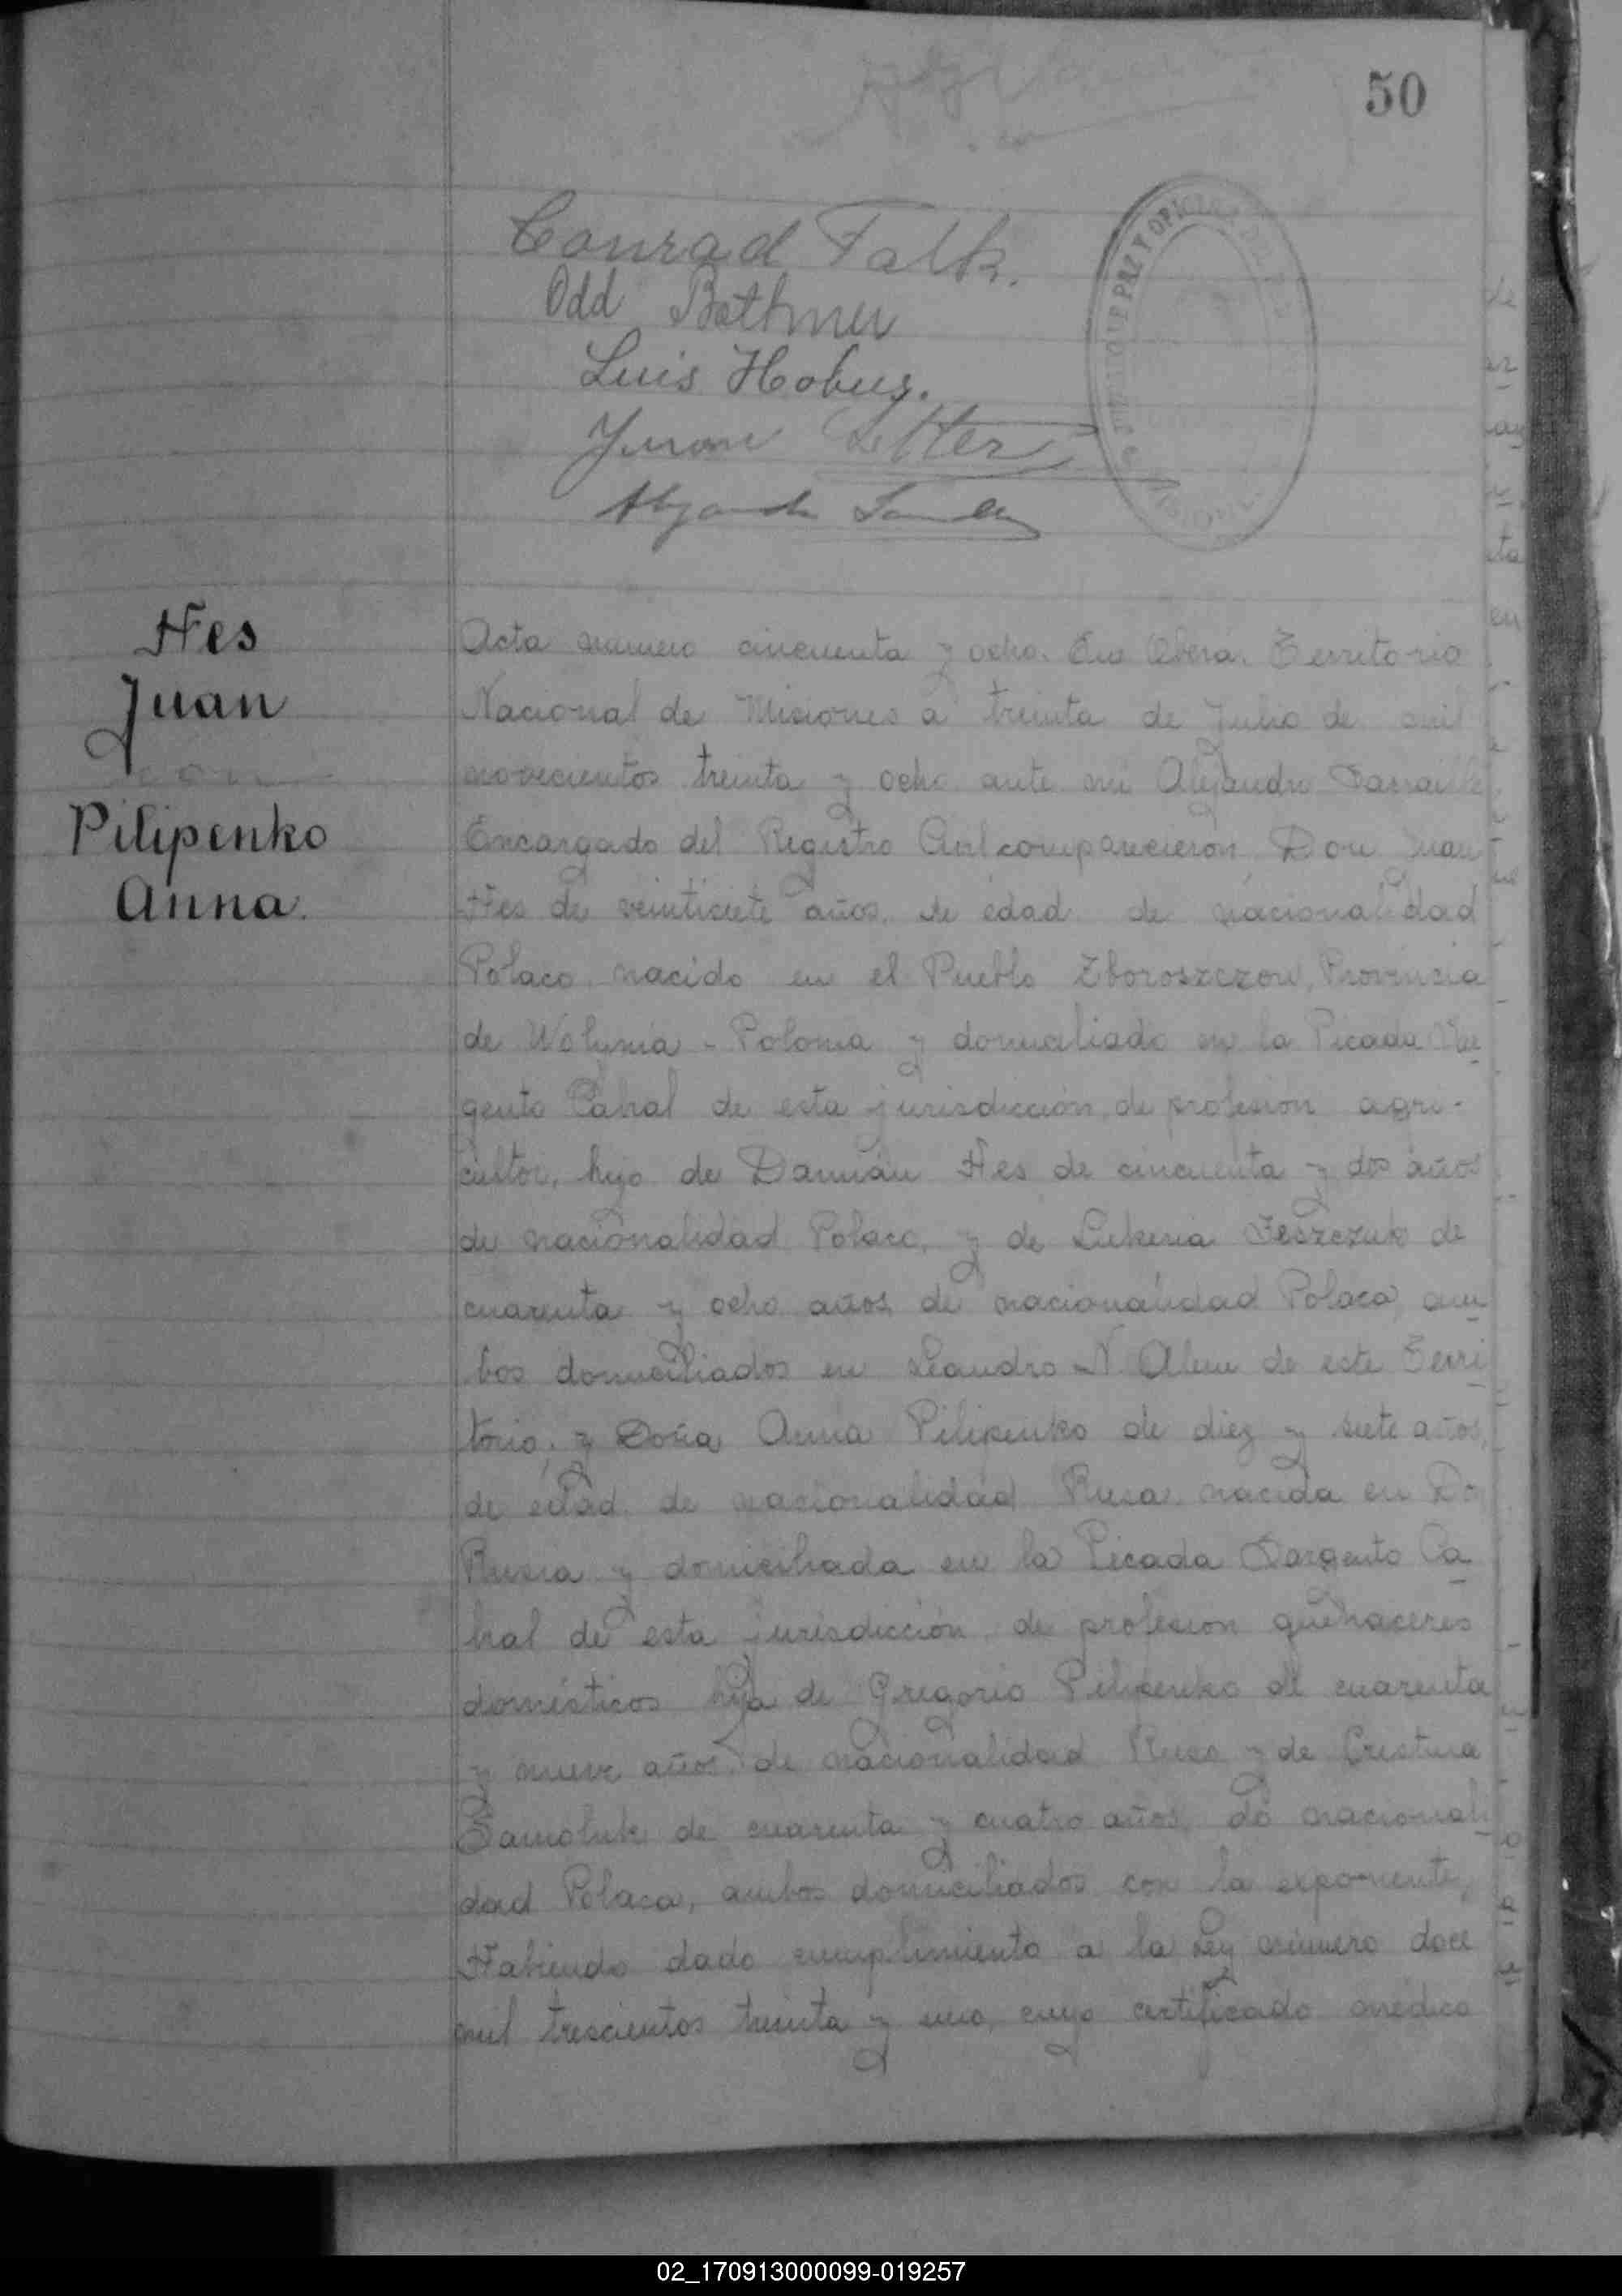 50
Conrad Falk.
Odd Bothmer
Luis Hobus.
Juan Letter
JUZGADO DE PAZ Y OFICINA DEL
Hes
Juan
con
Pilipenko
Anna.
Acta número cincuenta y ocho. En Oberá. Territorio
Nacional de Misiones a treinta de Julio de mil
novecientos treinta y ocho ante mi Alejandro
Encargado del Registro Civil comparecieron, Don Juan
Hes de veintisiete años, de edad de nacionalidad
Polaco, nacido en el Pueblo Zboroszczow, Provincia
de Wolynia - Polonia y domiciliado en la Picada Sar
gento Cabral de esta jurisdicción, de profesión agri-
cultor, hijo de Damián Hes de cincuenta y dos años
de nacionalidad Polaco, y de Lukeria Jeszczuk de
cuarenta y ocho años, de nacionalidad Polaca, am
bos domiciliados en Leandro N. Alem de este Terri
torio, y Doña Anna Pilipenko de diez y siete años,
de edad, de nacionalidad Rusa, nacida en
Rusia y domiciliada en la Picada Sargento Ca
bral de esta jurisdicción, de profesion quehaceres
domésticos hija de Gregorio Pilipenko de cuarenta
y nueve años, de nacionalidad Ruso y de Cristina
Samoluk de cuarenta y cuatro años, de nacionali
dad Polaca, ambos domiciliados con la exponente,
Habiendo dado cumplimiento a la Ley número doce
mil trescientos treinta y uno, cuyo certificado médico
02_170913000099-019257